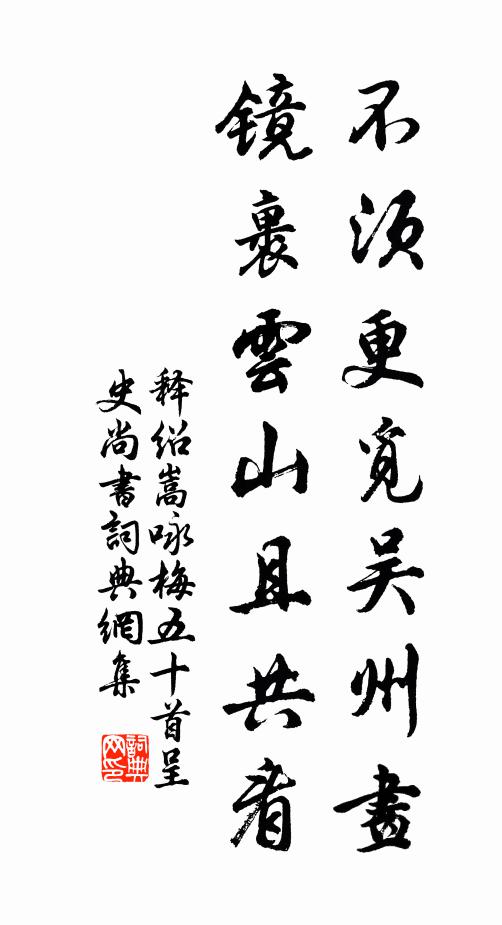 不须更觅吴州畫
镜裏雲山且共看
释绍嵩咏梅五十首呈
史尚書詞典網集
詞典
网印